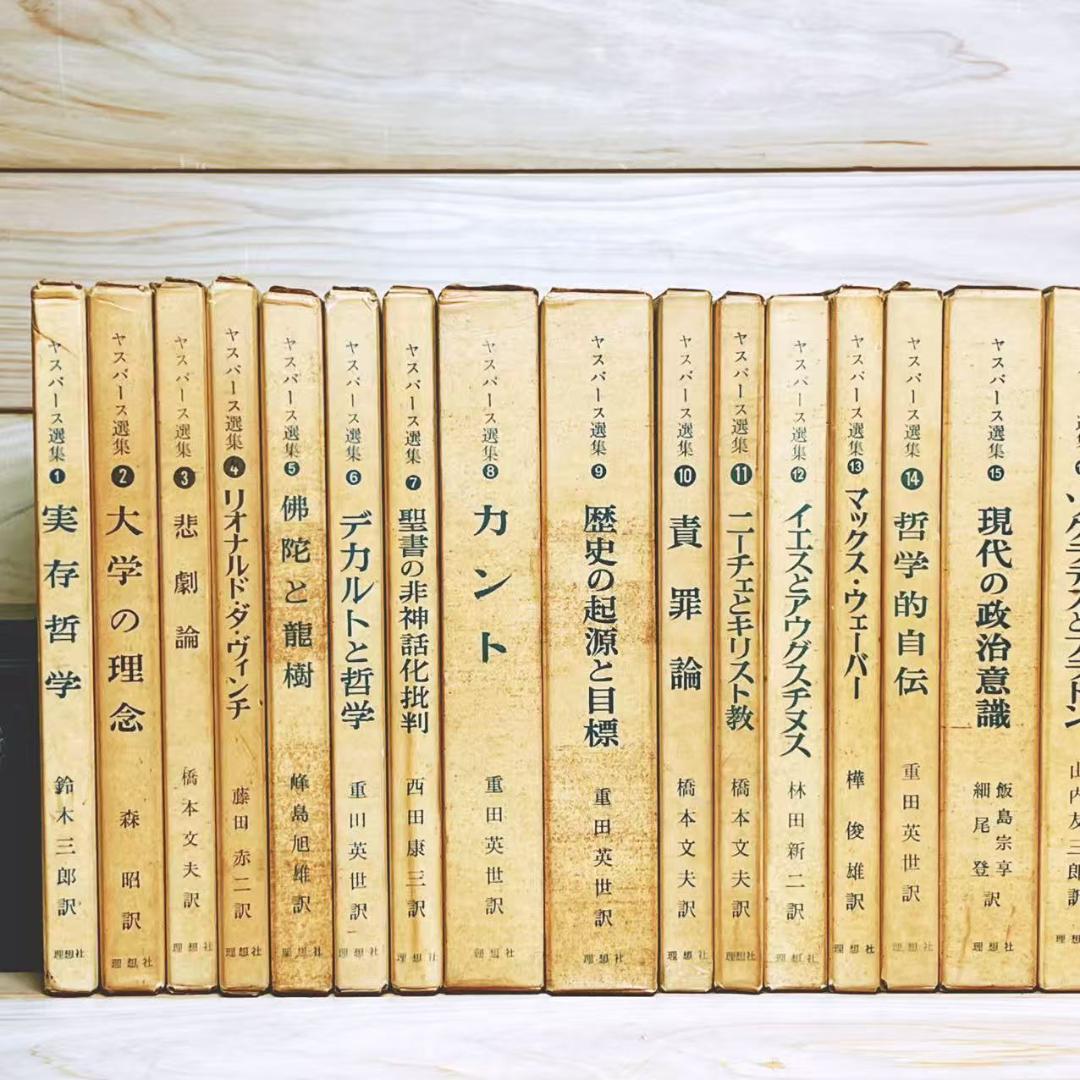 ヤスパース選集 1 実存哲学 鈴木三郎訳 理想社
ヤスパース選集 2 大学の理念 森昭訳 理想社
ヤスパース選集 3 悲劇論 橋本文夫訳 理想社
ヤスパース選集 4 リオナルド・ダ・ヴィンチ 藤田赤二訳 理想社
ヤスパース選集 5 佛陀と龍樹 峰島旭雄訳 理想社
ヤスパース選集 6 デカルトと哲学 重田英世訳 理想社
ヤスパース選集 7 聖書の非神話化批判 西田康三訳 理想社
ヤスパース選集 8 カント 重田英世訳 理想社
ヤスパース選集 9 歴史の起源と目標 重田英世訳 理想社
ヤスパース選集 10 責罪論 橋本文夫訳 理想社
ヤスパース選集 11 ニーチェとキリスト教 橋本文夫訳 理想社
ヤスパース選集 12 イエスとアウグスチヌス 林田新二訳 理想社
ヤスパース選集 13 マックス・ウェーバー 樺俊雄訳 理想社
ヤスパース選集 14 哲学的自伝 重田英世訳 理想社
ヤスパース選集 15 現代の政治意識 飯島宗享 細尾登訳 理想社
ソクラテスとプラトン 山内友三郎訳 理想社